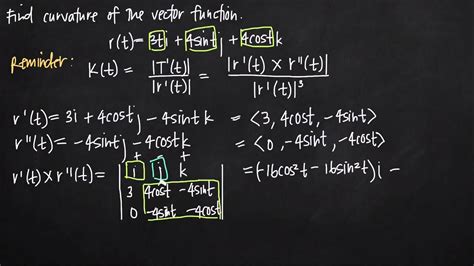 Find curvature of the vector function.
r(t) = 3t i + 4sint j + 4cost k
Reminder: K(t) = |T'(t)| / |r'(t)| = |r'(t) × r''(t)| / |r'(t)|³
r'(t) = 3i + 4cost j - 4sint k = <3, 4cost, -4sint>
r''(t) = -4sint j - 4cost k = <0, -4sint, -4cost>
+ - +
r'(t) × r''(t) = | i j k | = (-16cos²t - 16sin²t)i -
3 4cost -4sint
0 -4sint -4cost